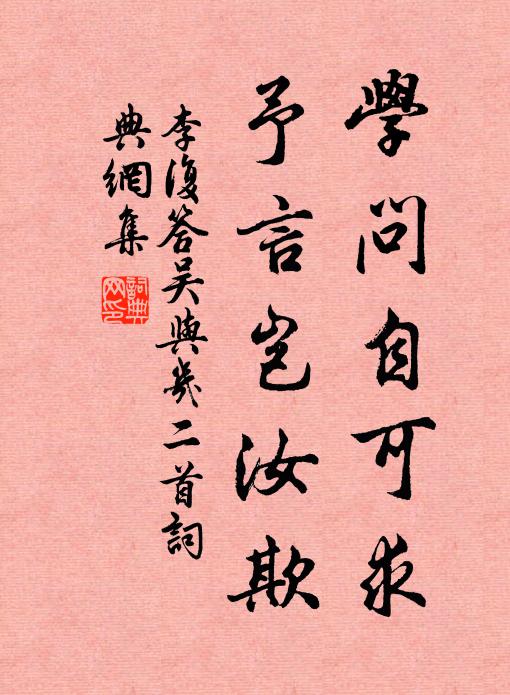 學問自可求
予言豈汝欺
李復答吳與幾二首詞
典網集
詞典
网印